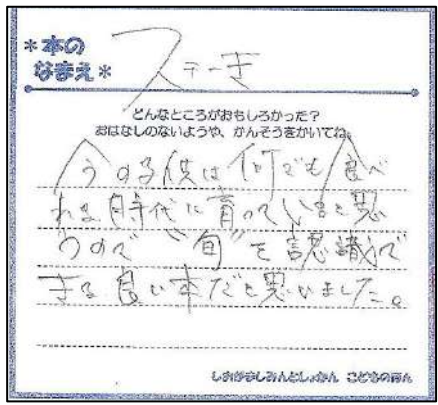 *本の
なまえ*
ステーキ
どんなところがおもしろかった？
おはなしのないようや、かんそうをかいてね。
今の子供は何でも食べ
れる時代に育っていると思
うので〝旬〟を認識で
きる良い本だと思いました。
しおがましみんとしょかん こどもの本ん